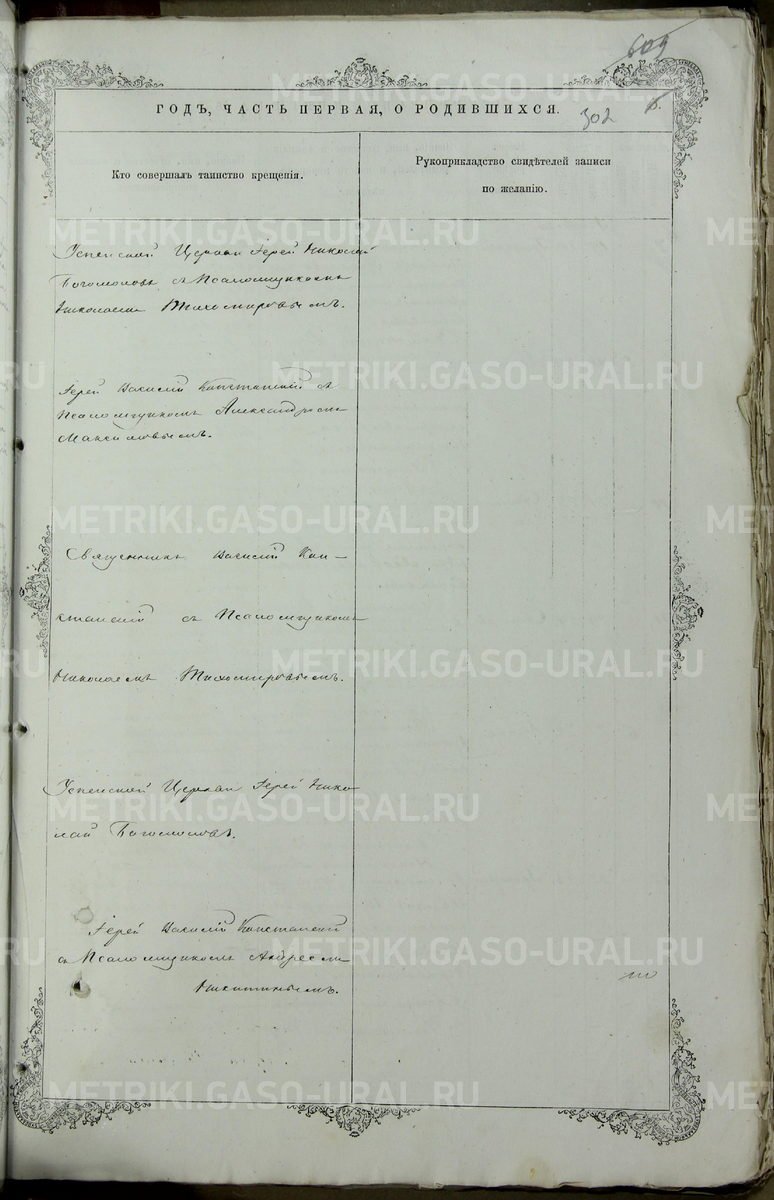 609
302
ГОДЪ, ЧАСТЬ ПЕРВАЯ, О РОДИВШИХСЯ.
Кто совершалъ таинство крещенія.
Рукоприкладство свидѣтелей записи
по желанію.
Успенской Церкви Іерей Николай
Богомоловъ съ Псаломщикомъ
Николаемъ Тихомировымъ.
Іерей Василій Капстанскій съ
Псаломщикомъ Александромъ
Максимовымъ.
Священникъ Василій Кап-
станскій съ Псаломщикомъ
Николаемъ Тихомировымъ.
Успенской Церкви Іерей Нико
лай Богомоловъ.
Іерей Василій Капстанскій
съ Псаломщикомъ Андреемъ
Никитинымъ.
METRIKI.GASO-URAL.RU